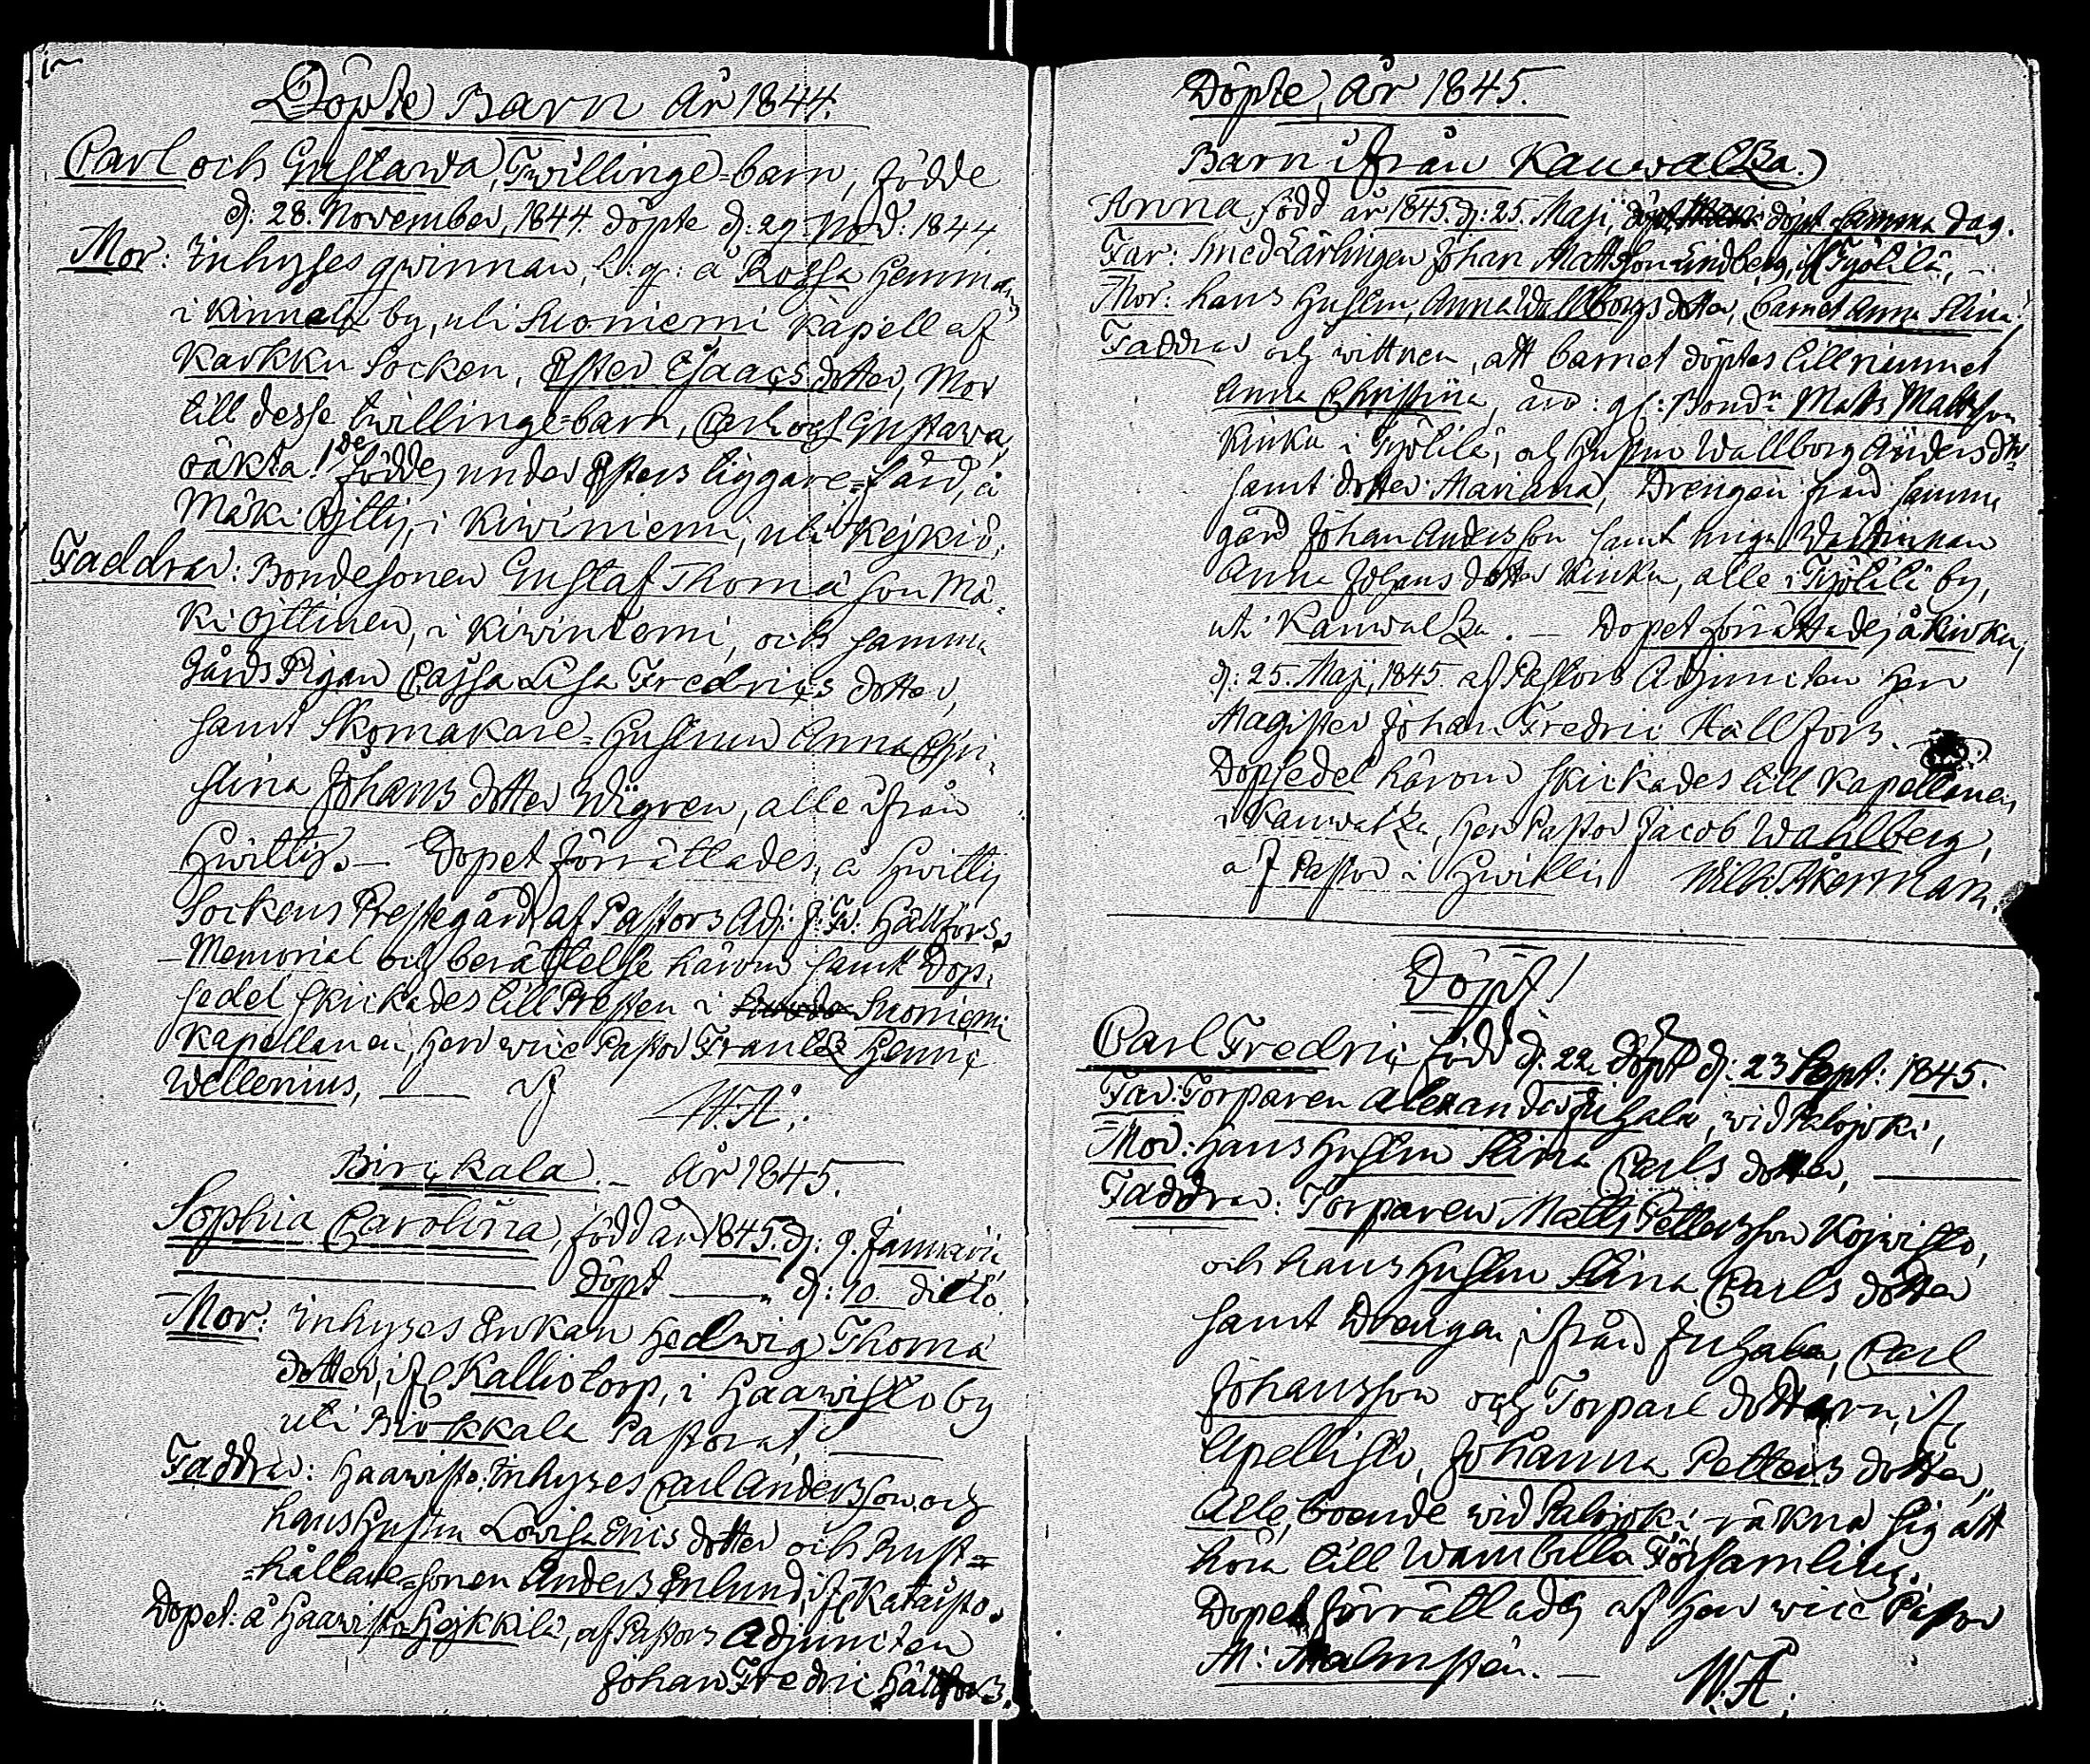 Döpte Barn År 1844.
Carl och Gustava, Twillinge-barn, födde
d: 28. November, 1844. döpte d: 29. Nov: 1844.
Mor: Inhyses qwinnan, å Rossa Hemman,
i Kinnala by, uti Suoniemi Kapell af
Karkku Socken, Ester Esaacs dotter, Mor
till desse twillinge-barn, Carl och Gustava,
oäkta! födde, under Esters liggare-färd, å
Mäki Ojtti, i Kiwiniemi, uti Kejkiö.
Faddrar: Bondesonen Gustaf Thomä son Mä-
ki Ojttinen, i Kiwiniemi, och samma
gårds Pigan Cajsa Lisa Fredrics dotter,
samt Skomakare-Hustrun Anna Chri-
stina Johans dotter Wigren, alle ifrån
Hwittis. — Dopet förrättades, å Hwittis
Sockens Prestegård, af Pastors Adj: J: Fr: Hällfors.
Memorial och berättelse härom samt Dop-
sedel skickades till Presten i Suoniemi
Kapellanen, Herr vice Pastor Frantz Henric
Wellenius, — af
W.Å.
Birckala. — År 1845.
Sophia Carolina, född år 1845. d: 9. Januarii,
döpt — d: 10. ditto.
Mor: Inhyses Enkan Hedwig Thomä
dotter, ifr Kalliotorp, i Haawisto by
uti Birkkala Pastorat, —
Faddrar: Haawisto Inhyses Carl Andersson och
hans Hustru Lovisa Eriks dotter och Rust-
hållare-sonen Anders Enlund, ifr Kataisto.
Dopet: å Haawisto Hejkkilä, af Pastors Adjuncten
Johan Fredric Hällfors.
Döpte, År 1845.
Barn ifrån Kauwatza.
Anna, född år 1845. d: 25. Maji, döpt samma dag.
Far: Smeds Lärlingen Johan Mattsson Lindberg, ifr Työlilä, —
Mor: hans Hustru, Anna Wallborgs dotter, barnet Anna Stina!
Faddrar och wittnen, att barnet döptes till namnet
Anna Christina, äro: Bonden Matts Mattsson
Kinku i Työlilä, och Hustrun Wallborg Anders dtr
samt dotter Mariana, Drengen från samma
gård Johan Andersson samt
Anna Johans dotter Kinku, alle i Työlilä by,
uti Kauwatza. — Dopet förrättades å Kinku,
d: 25. Maji, 1845. af Pastors Adjuncten Herr
Magister Johan Fredric Hällfors.
Dopsedel härom skickades till Kapellanen
i Kauwatza, Herr Pastor Jacob Wahlberg,
af Pastor i Hwittis Wilh. Åkerman.
Döpt!
Carl Fredric född d: 22. döpt d: 23 Sept: 1845.
Far: Torparen Alexander Juhala, wid Palojoki,
Mor: Hans Hustru Stina Carls dotter, —
Faddrar: Torparen Matts Pettersson Kojwisto,
och hans Hustru Stina Carls dotter
samt Drengen, ifrån Juhala, Carl
Johansson och Torpare dottern, ifr
Johanna Petters dotter,
Alle, boende wid Palojoki, räkna sig att
höra till Wambula Församling.
Dopet förrättades af Herr vice Pastor
M: Malmstén. — W.Å.